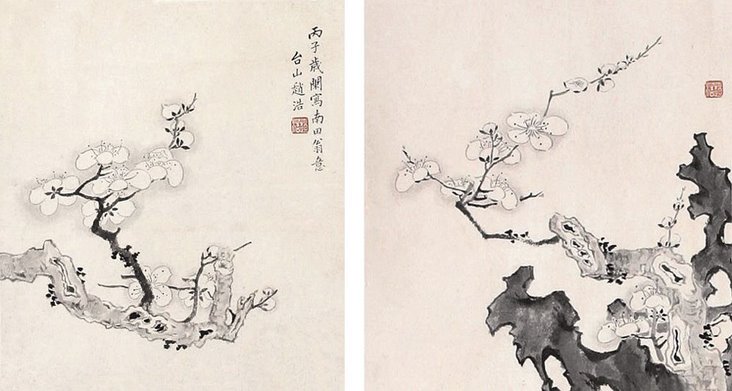 丙子歲闌寫南田翁意
台山趙浩